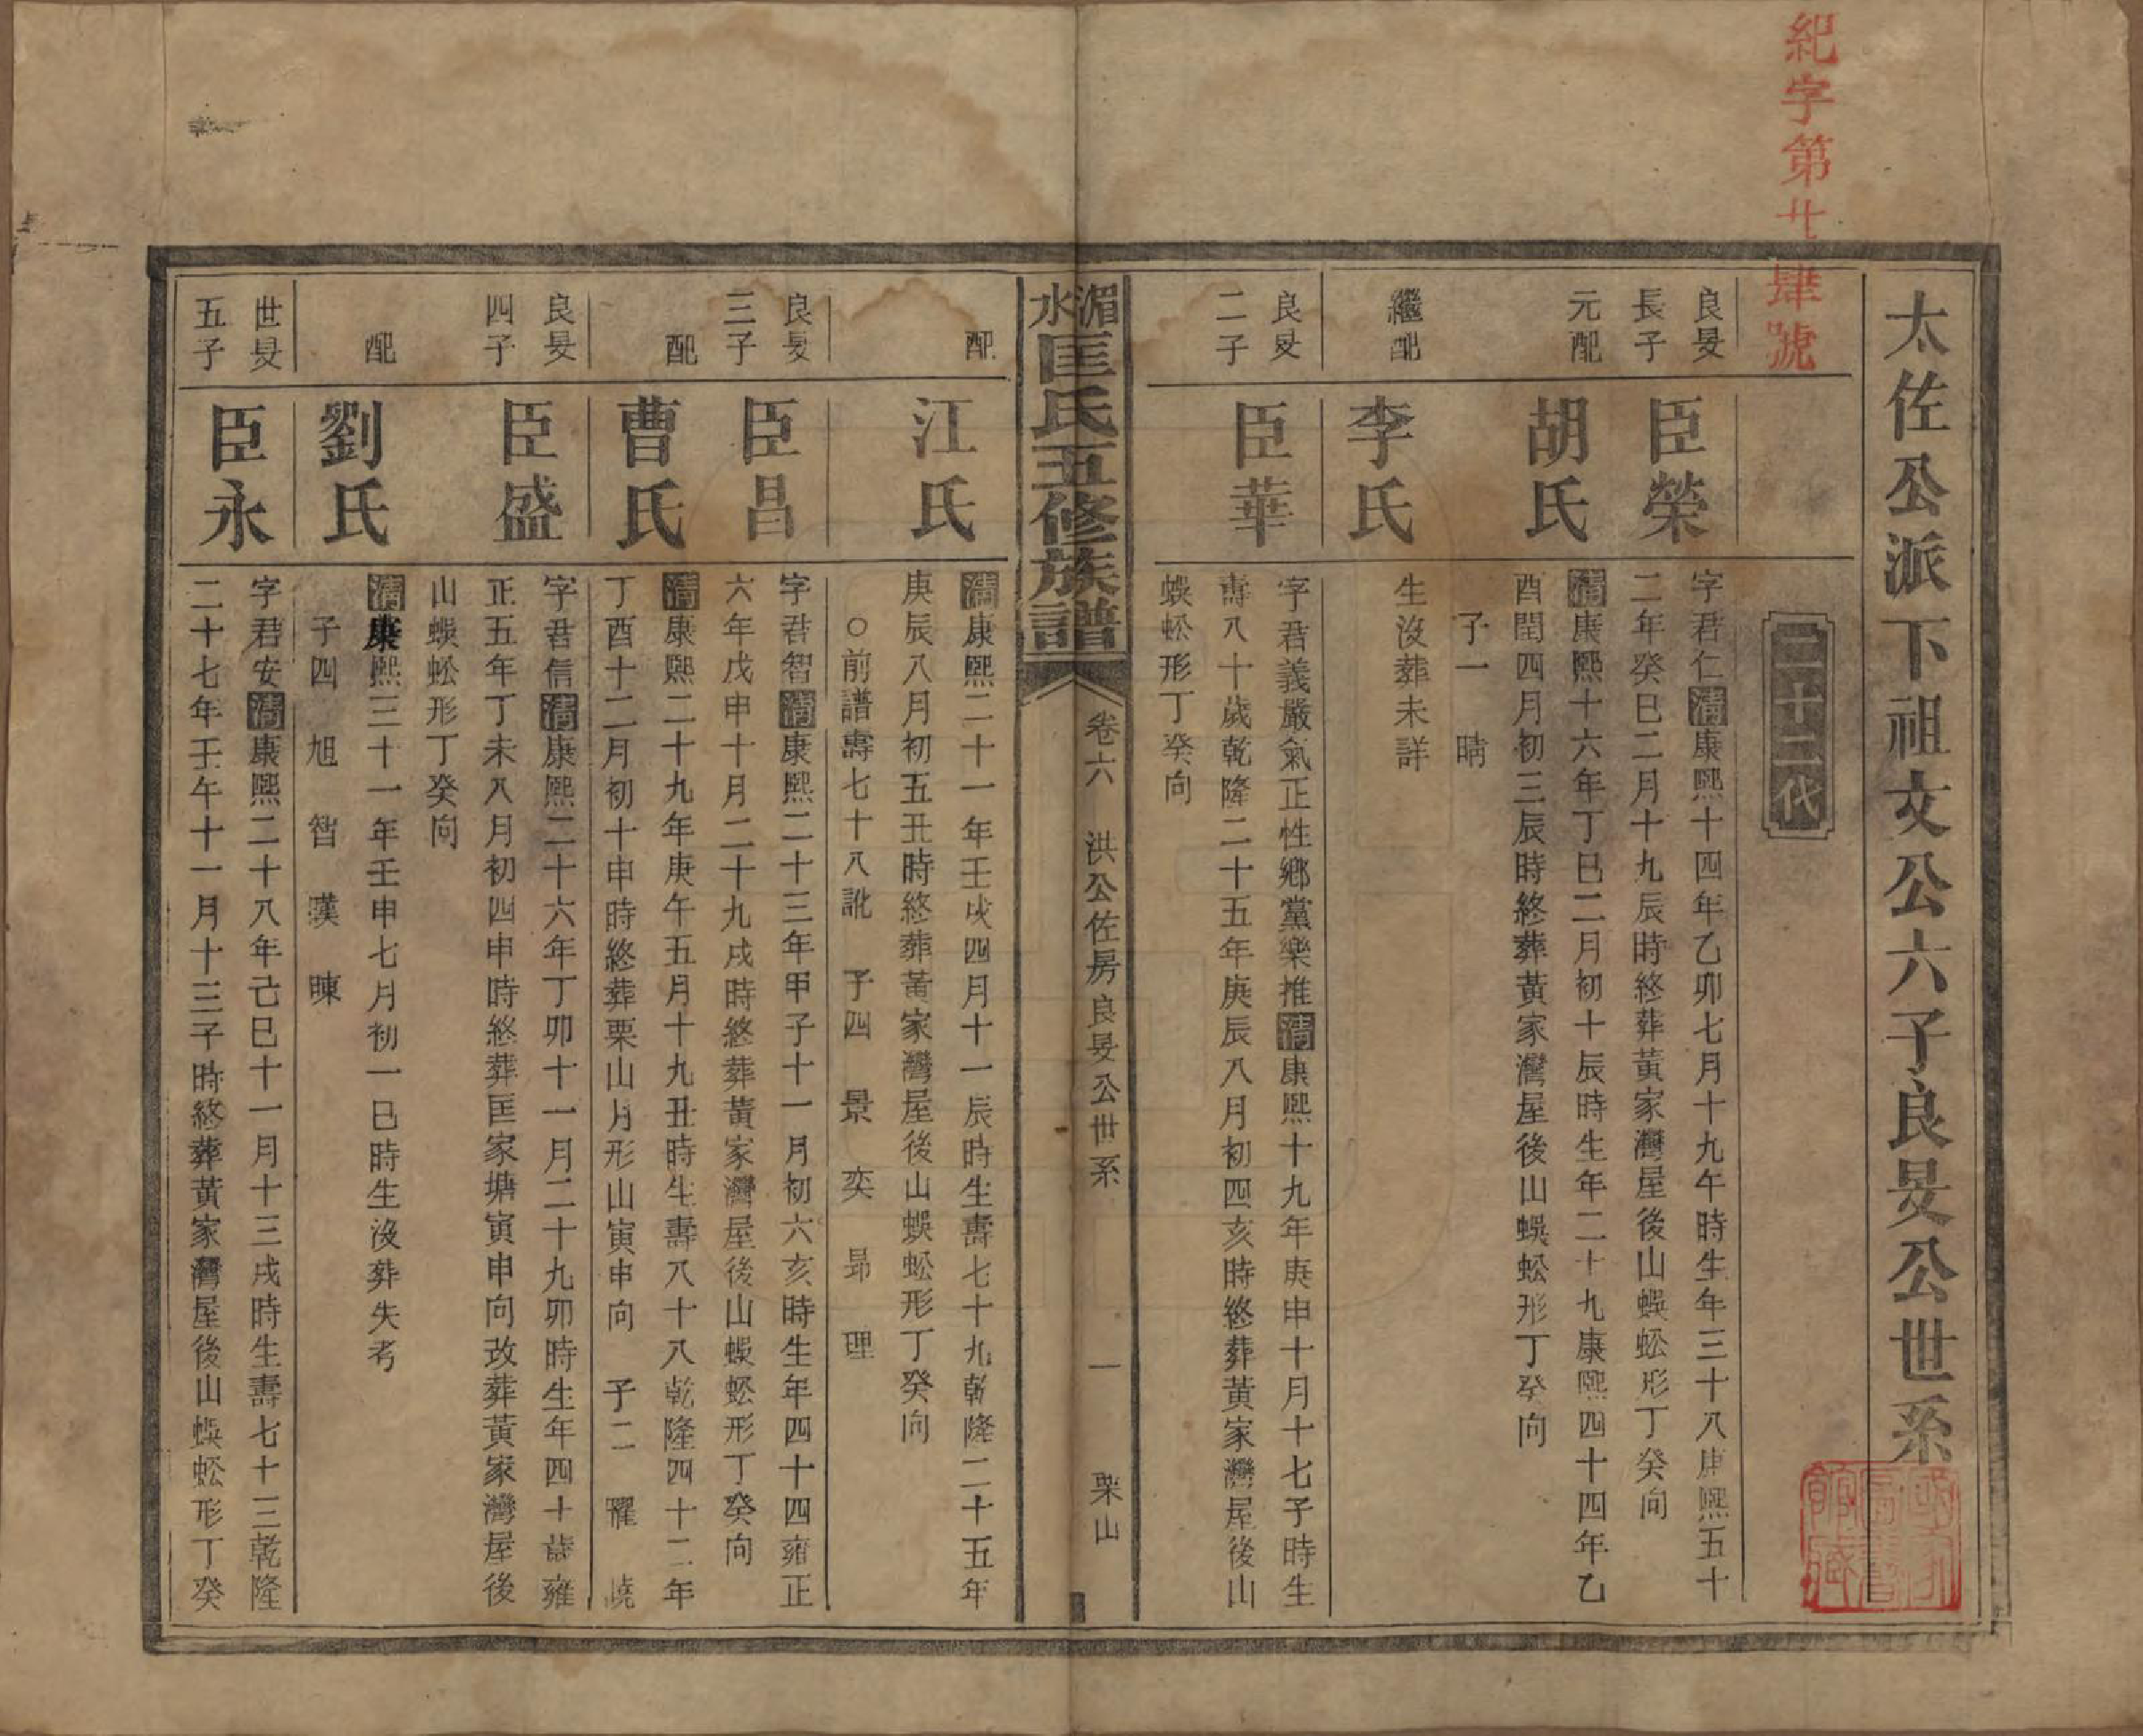 紀字第廿肆號
太佐公派下祖文公六子良旻公世系
二十二代
良旻
長子
臣榮
字君仁清康熙十四年乙卯七月十九午時生年三十八康熙五十
二年癸巳二月十九辰時終葬黃家灣屋後山蜈蚣形丁癸向
元配
胡氏
清康熙十六年丁巳二月初十辰時生年二十九康熙四十四年乙
酉閏四月初三辰時終葬黃家灣屋後山蜈蚣形丁癸向
子一 晴
繼配
李氏
生沒葬未詳
良旻
二子
臣華
字君義嚴氣正性鄉黨樂推清康熙十九年庚申十月十七子時生
壽八十歲乾隆二十五年庚辰八月初四亥時終葬黃家灣屋後山
蜈蚣形丁癸向
湄水匡氏五修族譜
卷六 洪公佐房良旻公世系 一 栗山
配
江氏
清康熙二十一年壬戌四月十一辰時生壽七十九乾隆二十五年
庚辰八月初五丑時終葬黃家灣屋後山蜈蚣形丁癸向
○前譜壽七十八訛 子四 景 奕 昴 理
良旻
三子
臣昌
字君智清康熙二十三年甲子十一月初六亥時生年四十四雍正
六年戊申十月二十九戌時終葬黃家灣屋後山蜈蚣形丁癸向
配
曹氏
清康熙二十九年庚午五月十九丑時生壽八十八乾隆四十二年
丁酉十二月初十申時終葬栗山月形山寅申向 子二 曜 曉
良旻
四子
臣盛
字君信清康熙二十六年丁卯十一月二十九卯時生年四十歲雍
正五年丁未八月初四申時終葬匡家塘寅申向改葬黃家灣屋後
山蜈蚣形丁癸向
配
劉氏
清康熙三十一年壬申七月初一巳時生沒葬失考
子四 旭 智 暵 暕
世旻
五子
臣永
字君安清康熙二十八年己巳十一月十三戌時生壽七十三乾隆
二十七年壬午十一月十三子時終葬黃家灣屋後山蜈蚣形丁癸